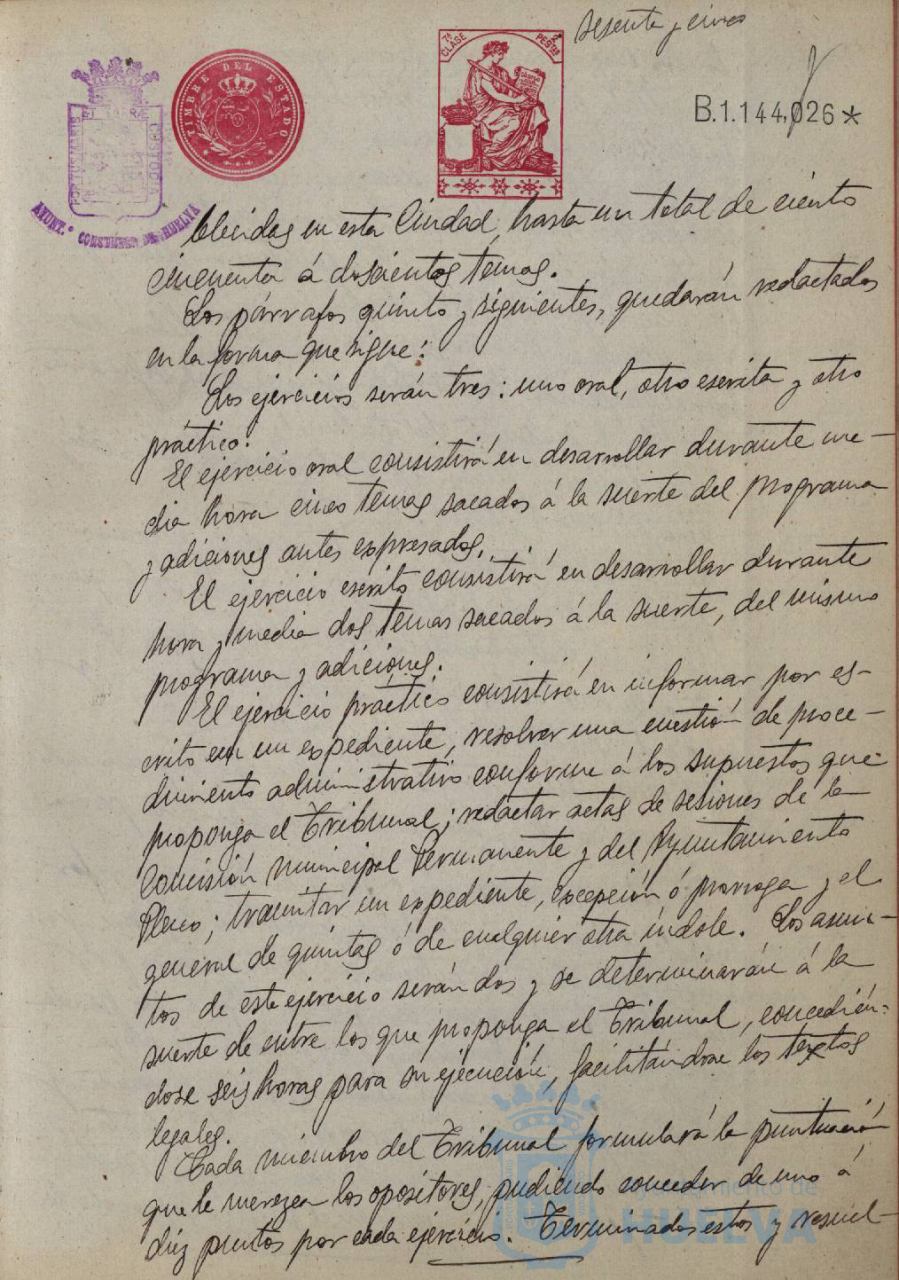 sesenta y cinco
TIMBRE DEL ESTADO
7ª CLASE
PESTAS
B.1.144,026*
PORTUS MARIS
CUSTODIA
AYUNT.º CONSTIT. DE HUELVA
blecidas en esta Ciudad, hasta un total de ciento
cincuenta á doscientos temas.
Los párrafos quinto y siguientes, quedarán redactados
en la forma que sigue:
Los ejercicios serán tres: uno oral, otro escrito y otro
práctico.
El ejercicio oral consistirá en desarrollar durante me-
dia hora cinco temas sacados á la suerte del programa
y adiciones antes expresados.
El ejercicio escrito consistirá en desarrollar durante
hora y media dos temas sacados á la suerte, del mismo
programa y adiciones.
El ejercicio práctico consistirá en informar por es-
crito en un expediente, resolver una cuestión de proce-
dimiento administrativo conforme á los supuestos que
proponga el Tribunal; redactar actas de sesiones de la
Comisión Municipal Permanente y del Ayuntamiento
Pleno; tramitar un expediente, excepción ó prorroga y el
general de quintas ó de cualquier otra índole. Los asun-
tos de este ejercicio serán dos y se determinarán á la
suerte de entre los que proponga el Tribunal, concedién-
dose seis horas para su ejecución, facilitándose los textos
legales.
Cada miembro del Tribunal formulará la puntuación
que le merezca los opositores, pudiendo conceder de uno á
diez puntos por cada ejercicio. Terminados estos y resuel-
Ayuntamiento de
HUELVA